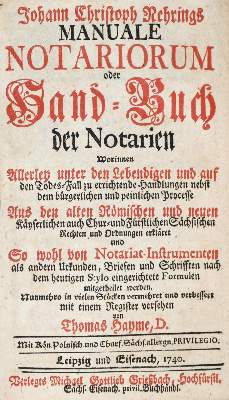 Johann Christoph Nehrings
MANUALE
NOTARIORUM
oder
Hand-Buch
der Notarien
Worinnen
Allerley unter den Lebendigen und auf
den Todes-Fall zu errichtende Handlungen nebst
dem bürgerlichen und peinlichen Processe
Aus den alten Römischen und neuen
Käyserlichen auch Chur- und Fürstlichen Sächsischen
Rechten und Ordnungen erkläret
und
So wohl von Notariat-Instrumenten
als andern Urkunden, Briefen und Schrifften nach
dem heutigen Stylo eingerichtete Formulen
mitgetheilet worden.
Nunmehro in vielen Stücken vermehret und verbessert
mit einem Register versehen
von
Thomas Hayme, D.
Mit Kön. Polnisch und Churf. Sächs. allergn. PRIVILEGIO.
Leipzig und Eisenach, 1740.
Verlegts Michael Gottlieb Grießbach, Hochfürstl.
Sächs. Eisenach. privil. Buchhändl.